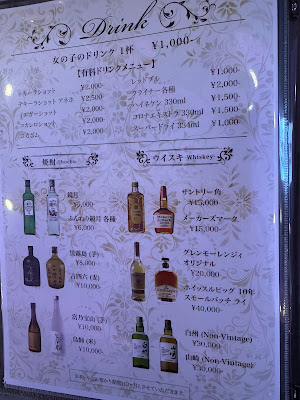 Drink
女の子のドリンク 1杯 ¥1,000-
【有料ドリンクメニュー】
¥2,000-
¥2,500-
¥2,000-
¥2,000-
¥2,000-
レッドブル ¥1,000-
クライナー各種 ¥1,000-
ハイネケン 330ml ¥1,500-
コロナエキストラ 330ml ¥1,500-
スーパードライ 334ml ¥1,000-
焼酎 -Shochu-
鏡月
¥5,000-
ふんわり鏡月 各種
¥6,000-
黒霧島 (芋)
¥8,000-
吉四六 (麦)
¥10,000-
富乃宝山 (芋)
¥10,000-
鳥飼 (米)
¥10,000-
ウイスキー -Whiskey-
サントリー角
¥15,000-
メーカーズマーク
¥15,000-
グレンモーレンジィ
オリジナル
¥20,000-
ホイッスルピッグ 10年
スモールバッチ ライ
¥40,000-
白州 (Non-Vintage)
¥30,000-
山崎 (Non-Vintage)
¥30,000-